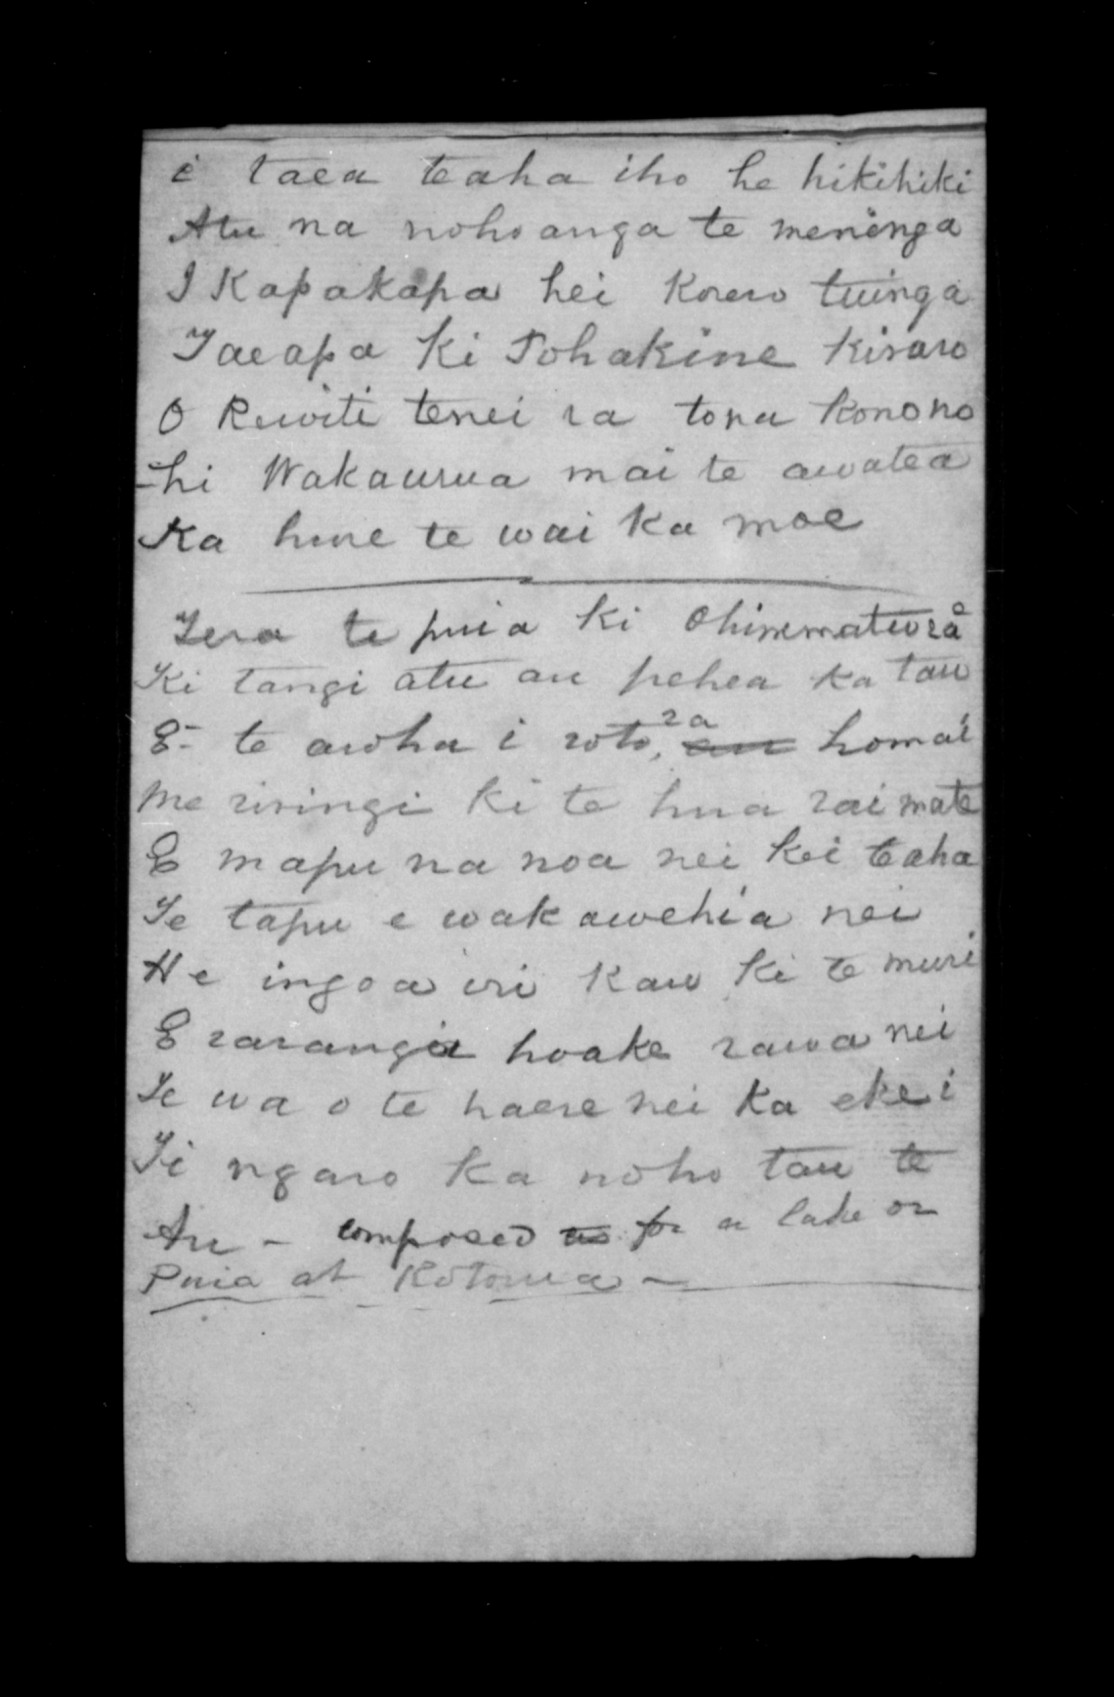 e taea teaha iho he hikihiki
Atu na nohoanga te menenga
I Kapakapa hei Korero tuinga
Taeapa Ki Tohakine Kiraro
O Rewiti tenei ra tona Konono
-hi Wakaurua mai te awatea
Ka hure te wai Ka moe
Tera te puia ki Ohinematuroa
Ki tangi atu au pehea ka tau
E- te aroha i roto, ra homai
Me riringi ki te hua rai mate
E mapu na noa nei kei teaha
Te tapu e wakawehia nei
He ingoa iri kau ki te muri
E rarangia hoake rawa nei
Te wa o te haere nei Ka eke i
Ti ngaro Ka noho tau te
Au - composed for a lake or
Puia at Rotorua -